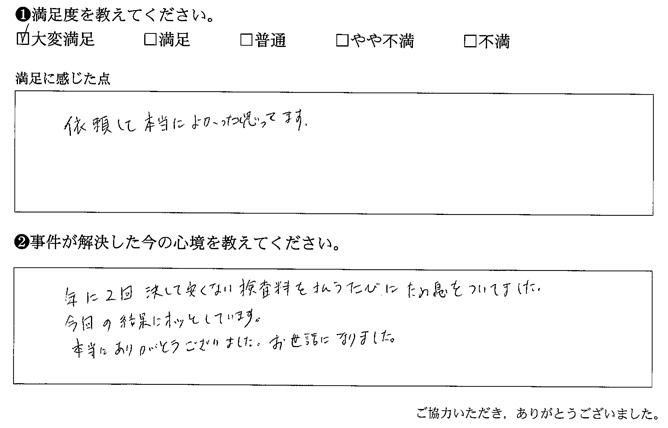 ❶満足度を教えてください。
☑大変満足 □満足 □普通 □やや不満 □不満
満足に感じた点
依頼して本当によかった思ってます.
❷事件が解決した今の心境を教えてください。
年に2回 決して安くない検査料を払うたびに ため息をついてました.
今回の結果にホッとしています。
本当にありがとうございました. お世話になりました。
ご協力いただき，ありがとうございました。